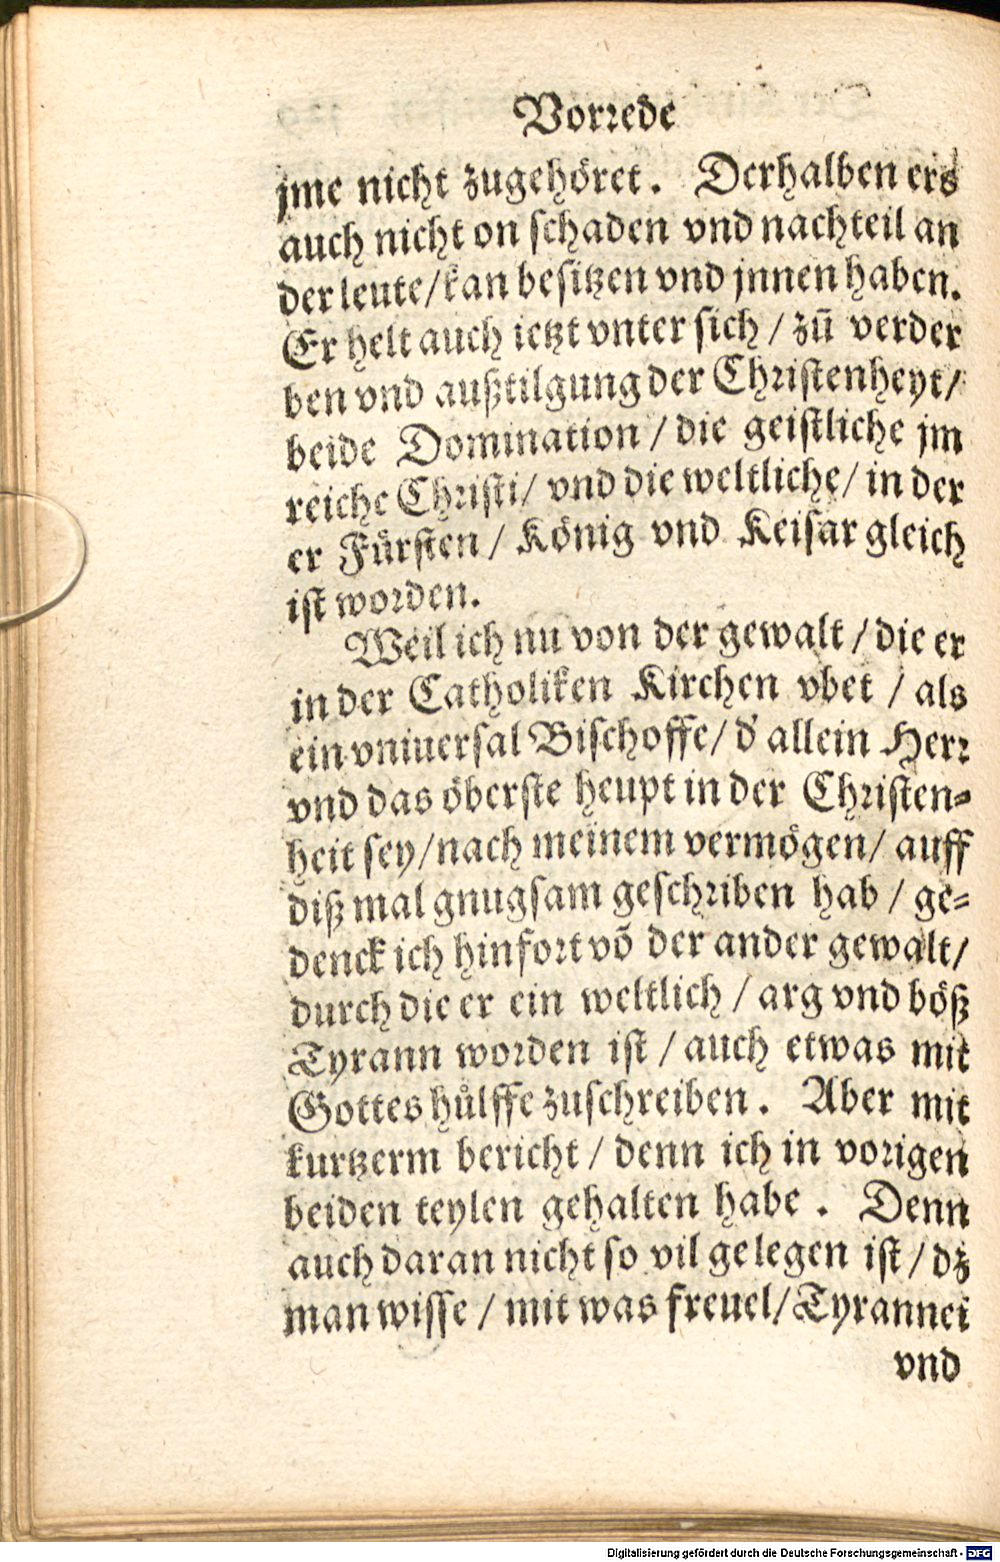 Vorrede
jme nicht zugehöret. Derhalben ers
auch nicht on schaden vnd nachteil an
der leute/kan besitzen vnd jnnen haben.
Er helt auch ietzt vnter sich / zů verder
ben vnd außtilgung der Christenheyt/
beide Domination / die geistliche jm
reiche Christi/ vnd die weltliche/ in der
er Fürsten / König vnd Keisar gleich
ist worden.
Weil ich nu von der gewalt / die er
in der Catholiken Kirchen vbet / als
ein vniuersal Bischoffe/ d' allein Herr
vnd das öberste heupt in der Christen=
heit sey/nach meinem vermögen/ auff
diß mal gnugsam geschriben hab / ge=
denck ich hinfort võ der ander gewalt/
durch die er ein weltlich / arg vnd böß
Tyrann worden ist / auch etwas mit
Gottes hülffe zuschreiben. Aber mit
kurtzerm bericht / denn ich in vorigen
beiden teylen gehalten habe. Denn
auch daran nicht so vil gelegen ist / dz
man wisse / mit was freuel/Tyrannei
vnd
Digitalisierung gefördert durch die Deutsche Forschungsgemeinschaft - DFG